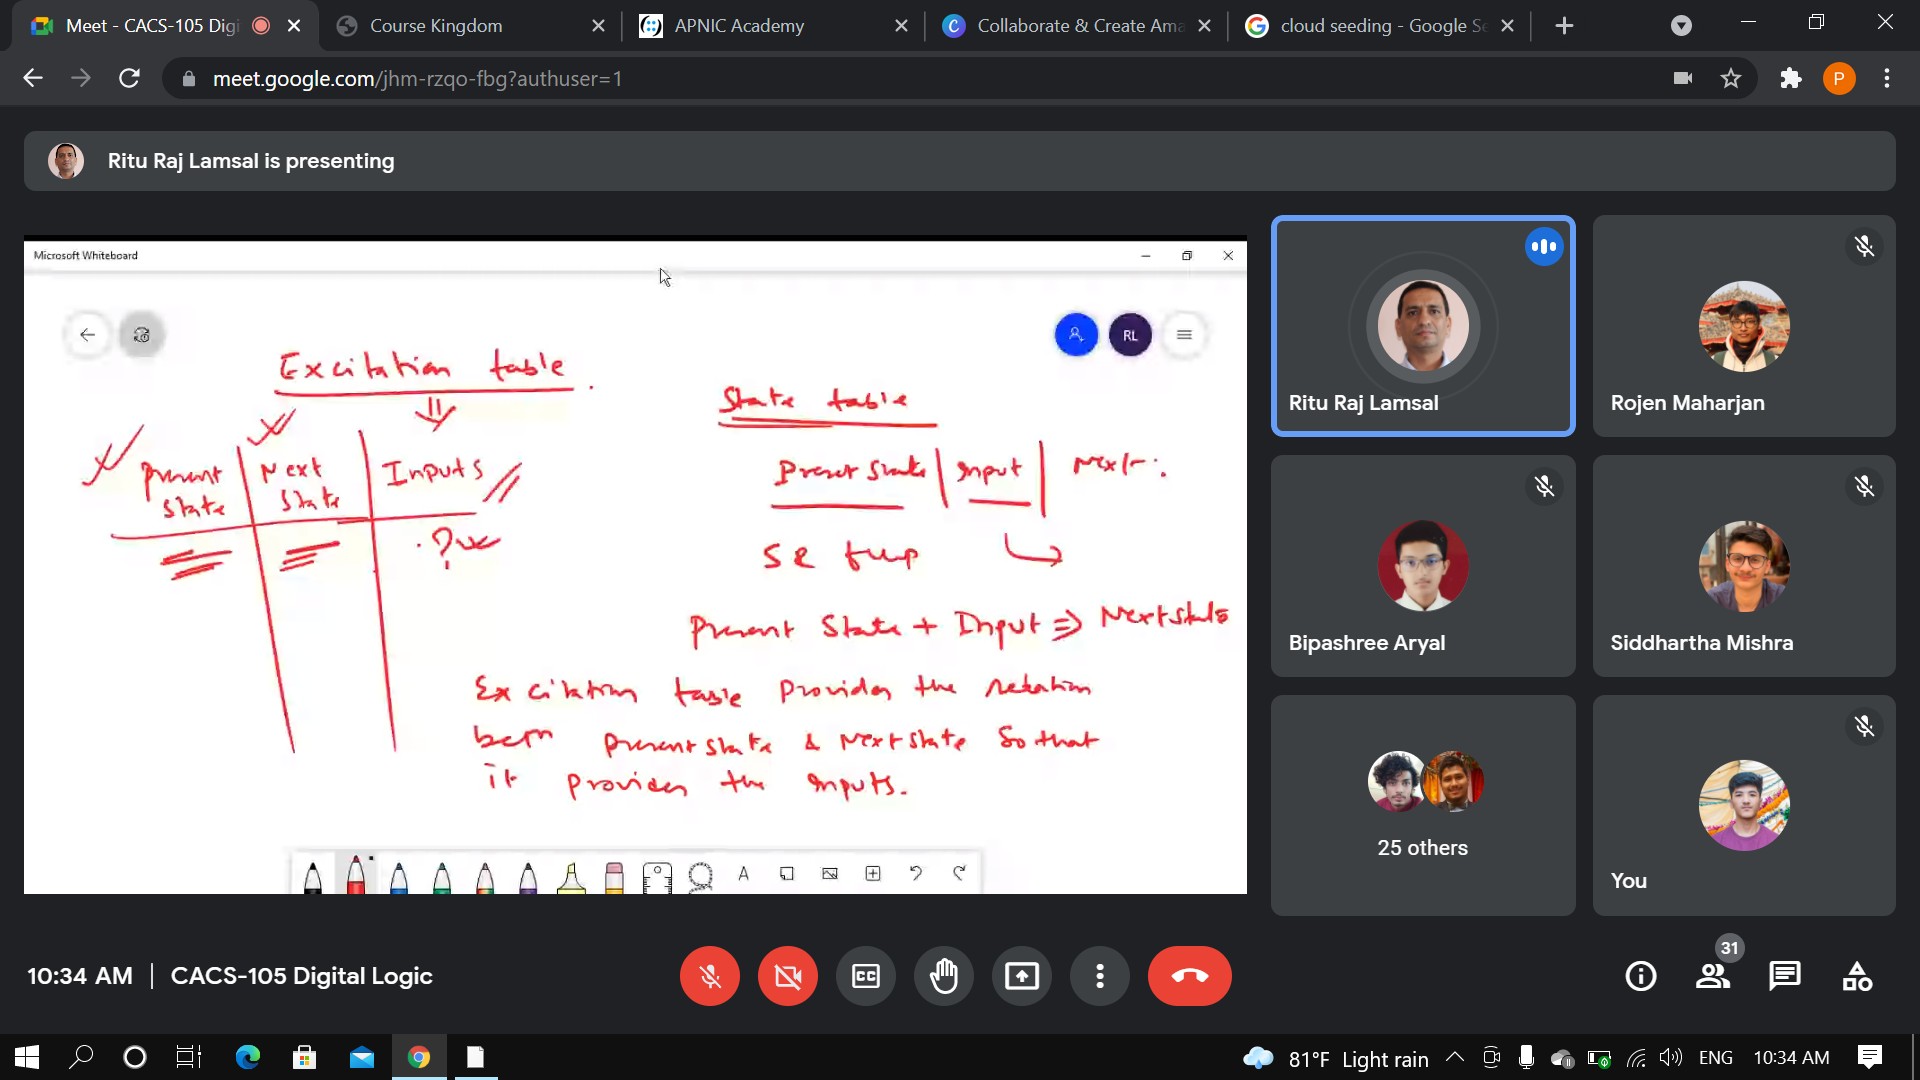 Meet - CACS-105 Digi
Course Kingdom
APNIC Academy
Collaborate & Create Ama
cloud seeding - Google Se
meet.google.com/jhm-rzqo-fbg?authuser=1
P
Ritu Raj Lamsal is presenting
Microsoft Whiteboard
RL
Excitation table
State table
Present State
Next State
Inputs
?
Present State
Input
Next
SR
Present State + Input ⇒ Next State
Excitation table provides the relation
betn present state & Next state so that
it provides the inputs.
A
Ritu Raj Lamsal
Rojen Maharjan
Bipashree Aryal
Siddhartha Mishra
25 others
You
10:34 AM | CACS-105 Digital Logic
CC
31
81°F Light rain
ENG
10:34 AM